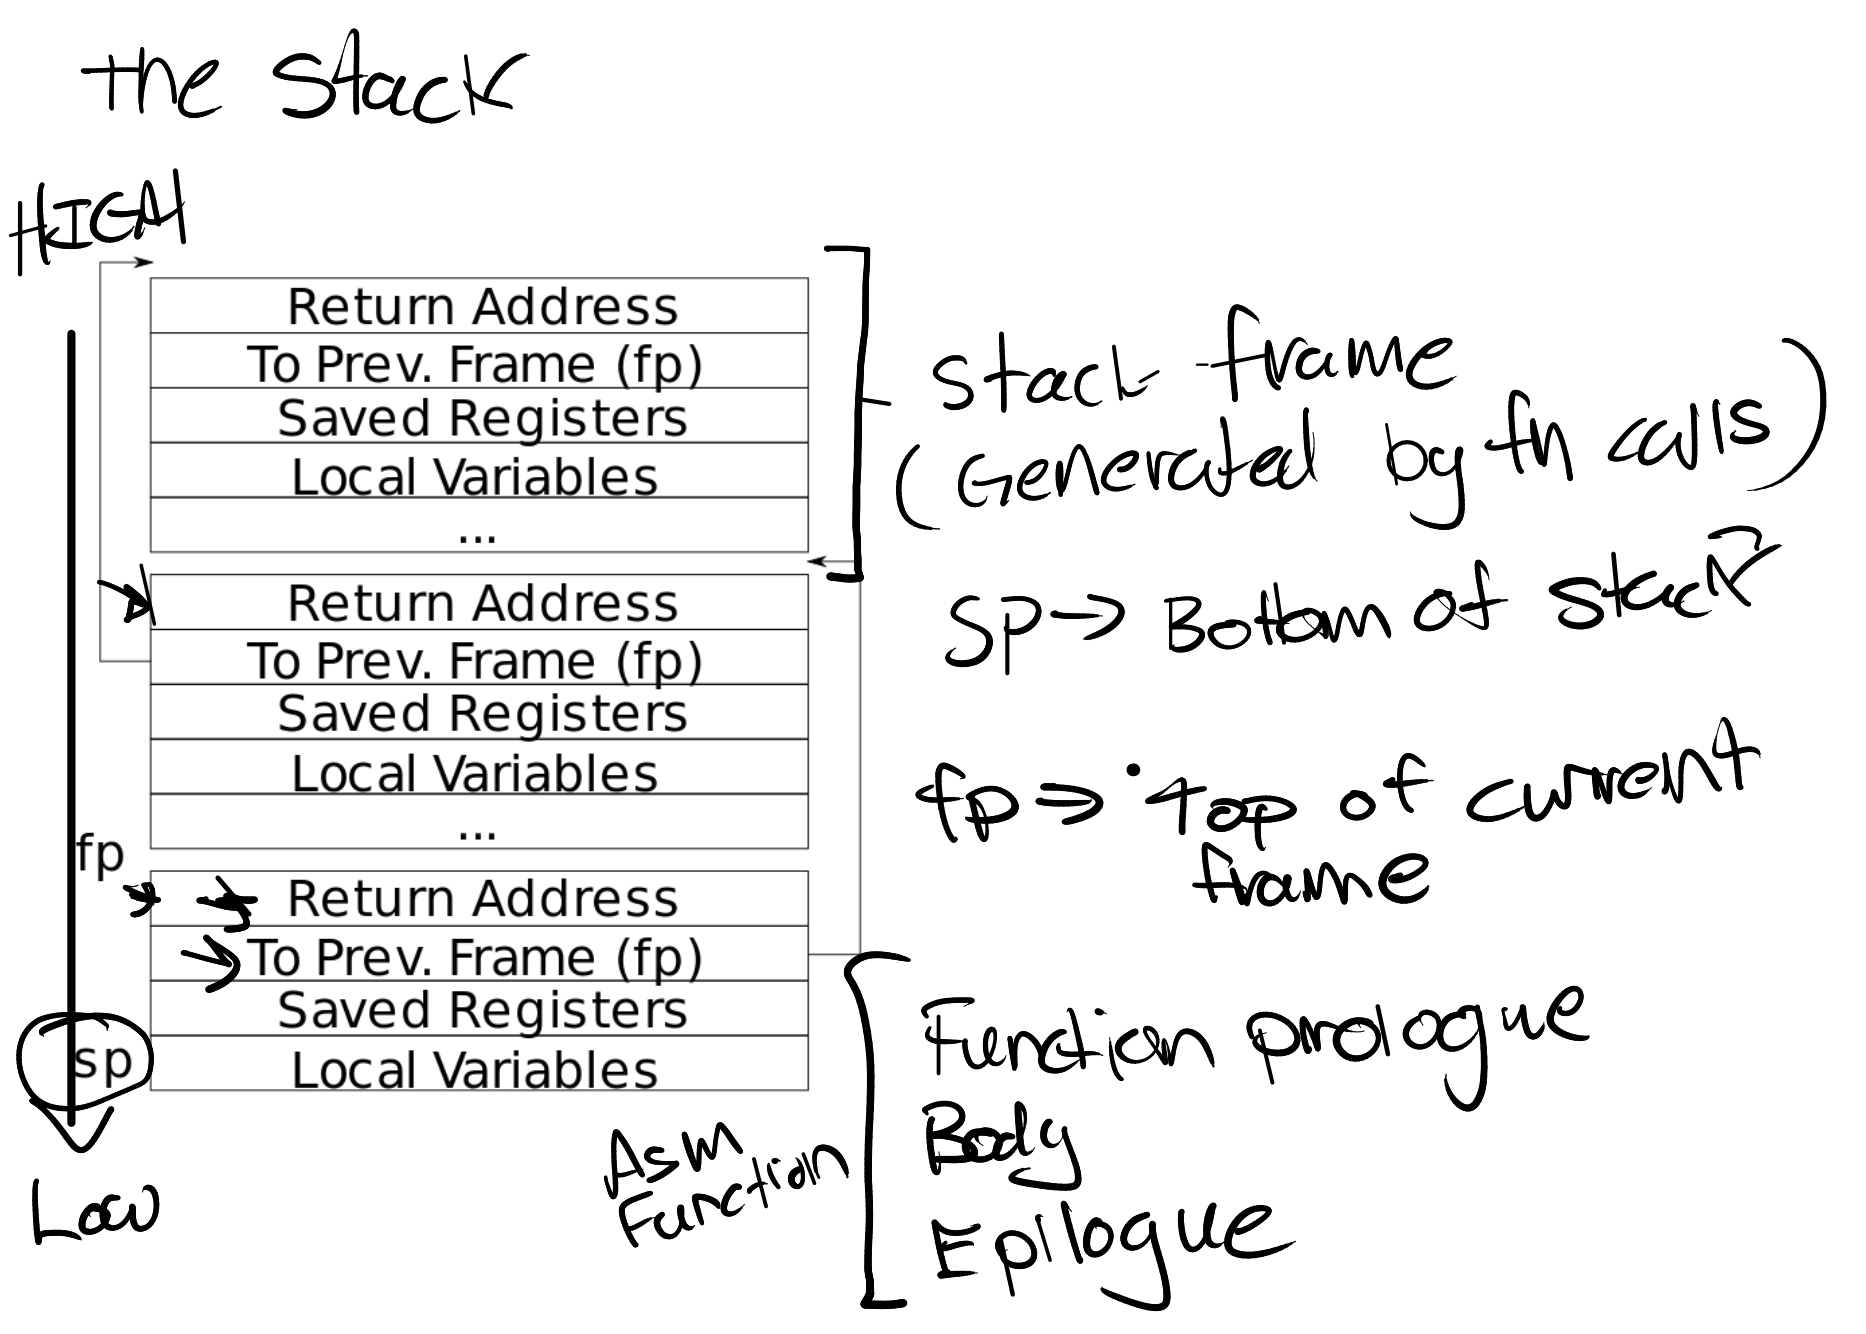 the Stack
HIGH
Return Address
To Prev. Frame (fp)
Saved Registers
Local Variables
...
Return Address
To Prev. Frame (fp)
Saved Registers
Local Variables
...
fp
Return Address
To Prev. Frame (fp)
Saved Registers
sp
Local Variables
Low
Stack frame
(Generated by fn calls)
Sp → Bottom of stack
fp → Top of current
frame
Asm
Function
Function prologue
Body
Epilogue